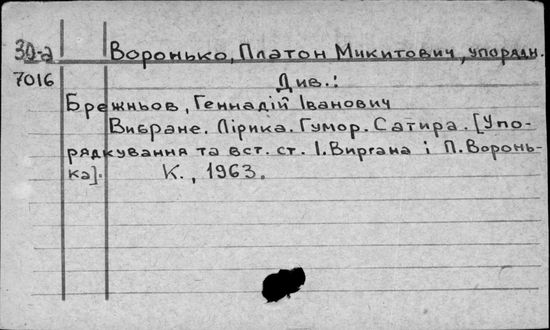 30-а Воронько, Платон Микитович, упорядн.
7016 Див.:
Брежньов, Геннадій Іванович
Вибране. Лірика. Гумор. Сатира. [Упо-
рядкування та вст. ст. І. Виргана і П. Воронь-
ка]. К., 1963.